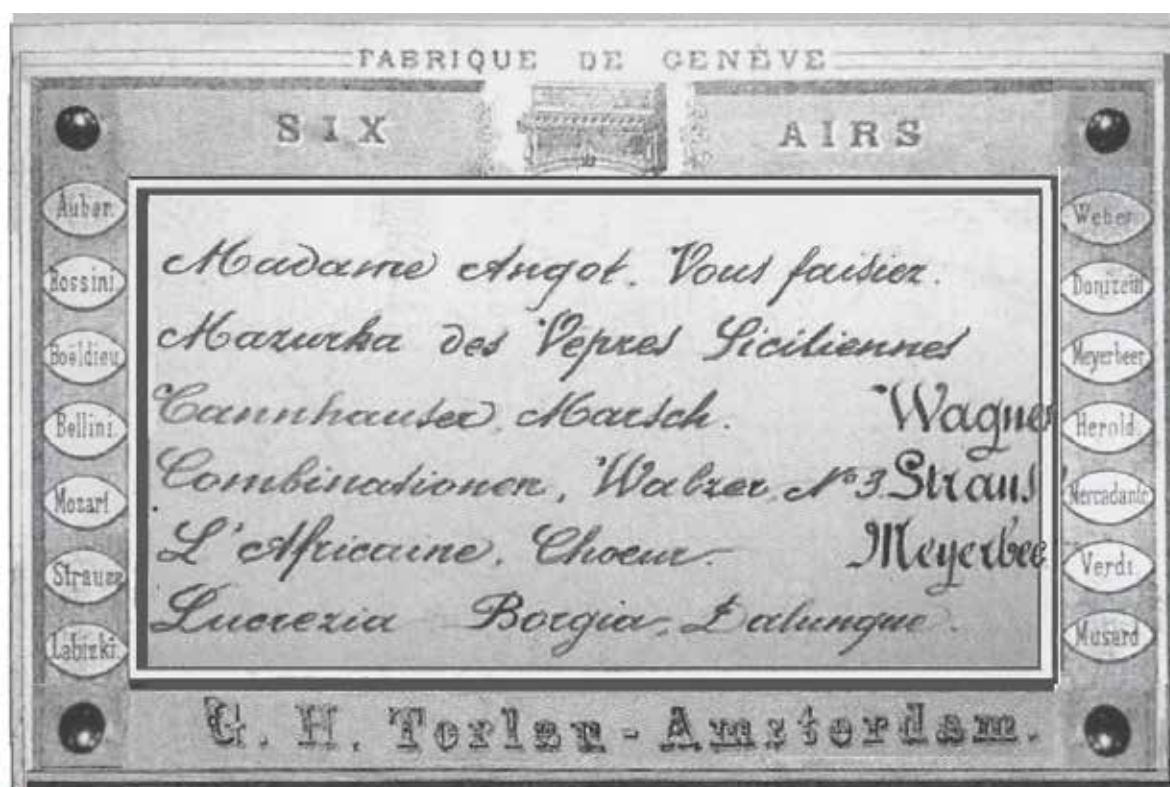 FABRIQUE DE GENÈVE
SIX AIRS
Auber.
Rossini.
Boeldieu
Bellini.
Mozart
Strauss
Labitzki.
Madame Angot. Vous faisiez.
Mazurka des Vepres Siciliennes
Tannhauser, Marsch. Wagner
Combinationen, Walzer, No 3. Straus
L'Africaine, Choeur. Meyerbee
Lucrezia Borgia,
Weber
Donizetti
Meyerbeer
Herold.
Mercadante
Verdi.
Musard
G. H. Torlen - Amsterdam.